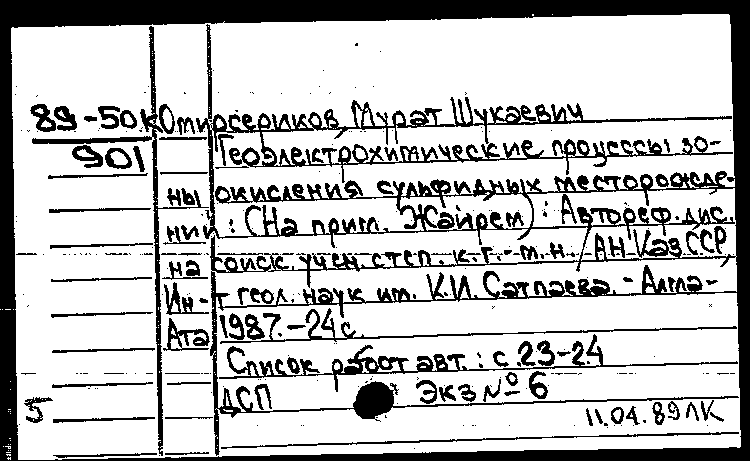 89-50к Омирсериков, Мурат Шукаевич
901 Геоэлектрохимические процессы зо-
ны окисления сульфидных месторожде-
ний : (На прим. Жайрем) : Автореф. дис.
на соиск. учен. степ. к.г.-м.н. / АН КазССР
Ин-т геол. наук им. К.И. Сатпаева. - Алма-
Ата, 1987. - 24 с.
Список работ авт. : с 23-24
ДСП Экз № 6
5 11.04.89 ЛК